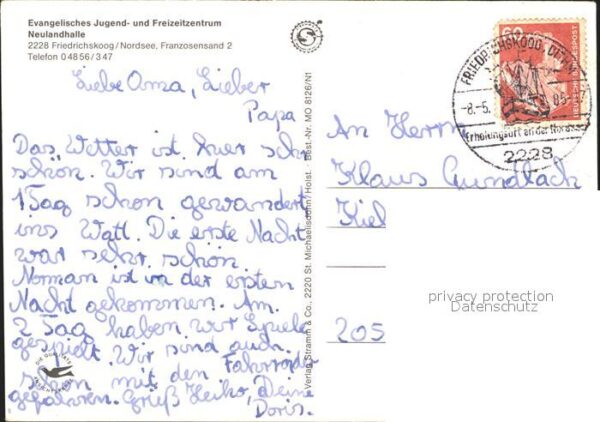 Evangelisches Jugend- und Freizeitzentrum
Neulandhalle
2228 Friedrichskoog/Nordsee, Franzosensand 2
Telefon 04856/347
Liebe Oma, Lieber
Papa
Das Wetter ist hier sehr
schön. Wir sind am
1 Tag schon gewandert
ins Watt. Die erste Nacht
war sehr schön.
Norman ist in der ersten
Nacht gekommen. Am
2 Tag haben wir Spiele
gespielt. Wir sind auch
schon mit den Fahrrädern
gefahren. Gruß Heiko, Deine
Doris.
Verlag Stramm & Co., 2220 St. Michaelisdonn/Holst. Best.-Nr. MO 8126/N1
60
DEUTSCHE BUNDESPOST
FRIEDRICHSKOOG, DITHM
-8.-5.
Erholungsort an der Nordsee
2228
An Herrn
Klaus Gundlach
Kiel
205
privacy protection
Datenschutz